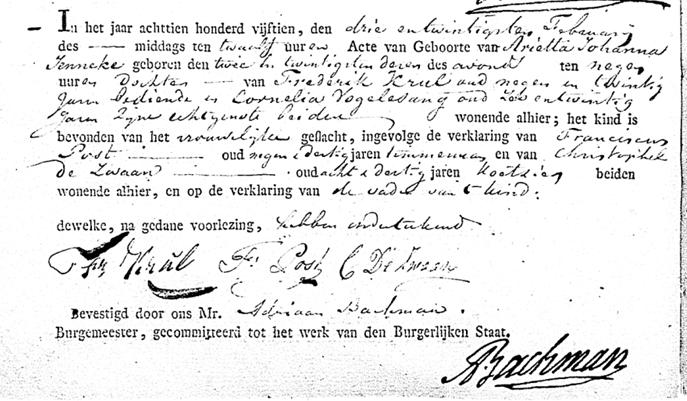 In het jaar achttien honderd vijftien, den drie entwintigsten February
des — middags ten twaalf uuren Acte van Geboorte van Ariella Johanna
Jenneke geboren den twee en twintigsten dezes des avonds ten negen
uuren Dochter — van Frederik Krul oud negen en twintig
Jaren Bediende en Cornelia Vogelesang oud zes entwintig
Jaren Zyne echtgenote beiden wonende alhier; het kind is
bevonden van het vrouwelijke geslacht, ingevolge de verklaring van Franciscus
Post — oud negen & dertig jaren timmerman en van Christophel
de Zwaan — oud acht & dertig jaren Koetsier beiden
wonende alhier, en op de verklaring van de vader van 't kind.
dewelke, na gedane voorlezing, hebben ondertekend
Krul Fs Post C De Zwaan
Bevestigd door ons Mr. Adriaan Bachman.
Burgemeester, gecommitteerd tot het werk van den Burgerlijken Staat.
ABachman